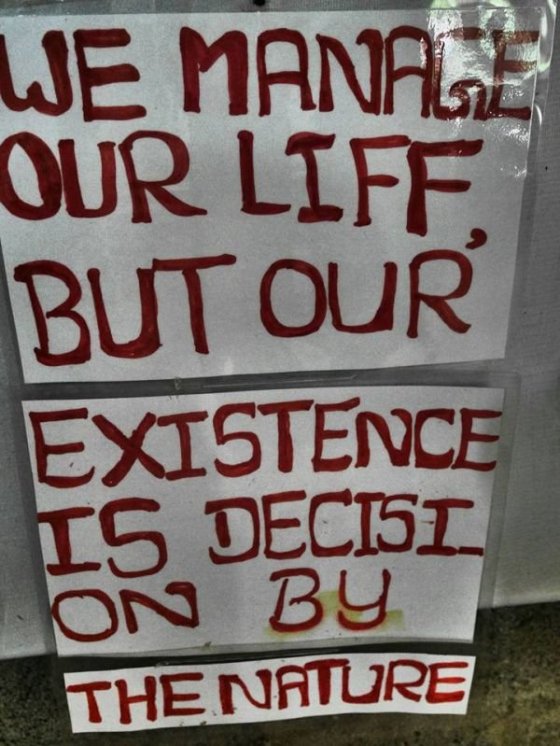 WE MANAGE
OUR LIFF,
BUT OUR
EXISTENCE
IS DECISI
ON BY
THE NATURE